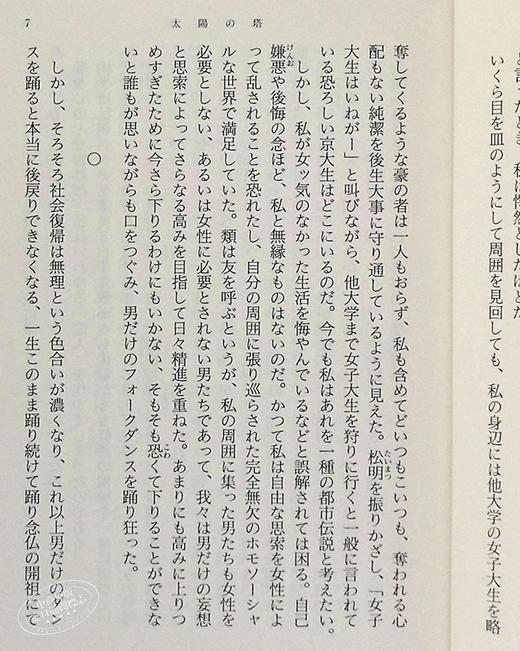 いくら目を皿のようにして周囲を見回しても、私の身辺には他大学の女子大生を略
太陽の塔
7
奪してくるような豪の者は一人もおらず、私も含めてどいつもこいつも、奪われる心
配もない純潔を後生大事に守り通しているように見えた。松明を振りかざし、「女子
大生はいねがー」と叫びながら、他大学まで女子大生を狩りに行くと一般に言われて
いる恐ろしい京大生はどこにいるのだ。今でも私はあれを一種の都市伝説と考えたい。
しかし、私が女ッ気のなかった生活を悔やんでいるなどと誤解されては困る。自己
嫌悪や後悔の念ほど、私と無縁なものはないのだ。かつて私は自由な思索を女性によ
って乱されることを恐れたし、自分の周囲に張り巡らされた完全無欠のホモソーシャ
ルな世界で満足していた。類は友を呼ぶというが、私の周囲に集った男たちも女性を
必要としない、あるいは女性に必要とされない男たちであって、我々は男だけの妄想
と思索によってさらなる高みを目指して日々精進を重ねた。あまりにも高みに上りつ
めすぎたために今さら下りるわけにもいかない、そもそも恐くて下りることができな
いと誰もが思いながらも口をつぐみ、男だけのフォークダンスを踊り狂った。
○
しかし、そろそろ社会復帰は無理という色合いが濃くなり、これ以上男だけのダン
スを踊ると本当に後戻りできなくなる、一生このまま踊り続けて踊り念仏の開祖にで